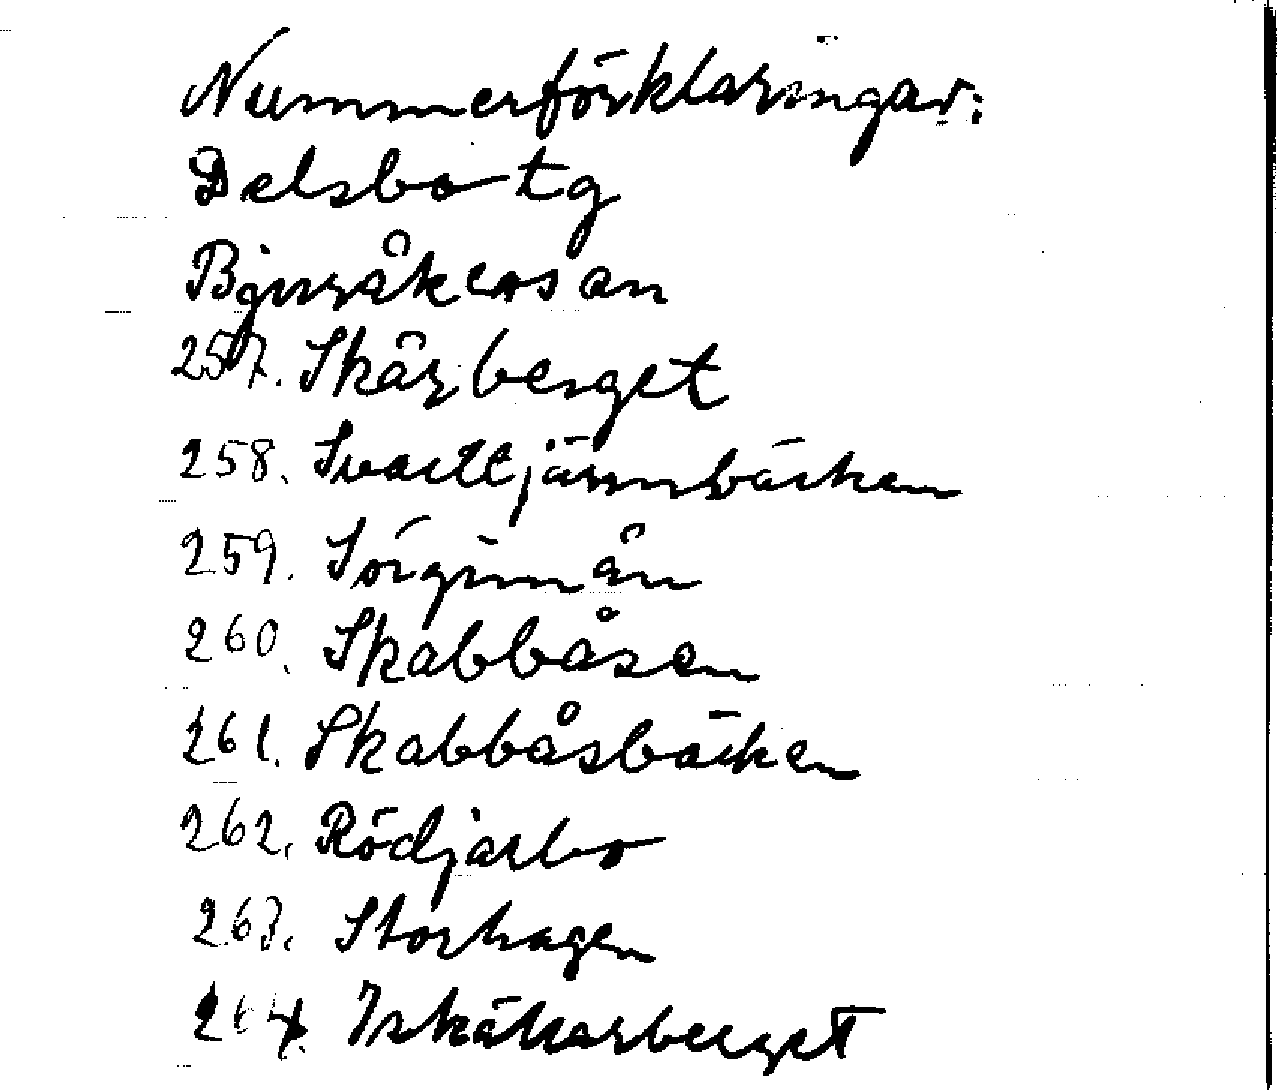 Nummerförklaringar:
Delsbo tg
Bjuråkers an
257. Skårberget
258. Svarttjärnsbäcken
259. Sörgimån
260. Skabbåsen
261. Skabbåsbäcken
262. Rödjarbo
263. Storhagen
264.